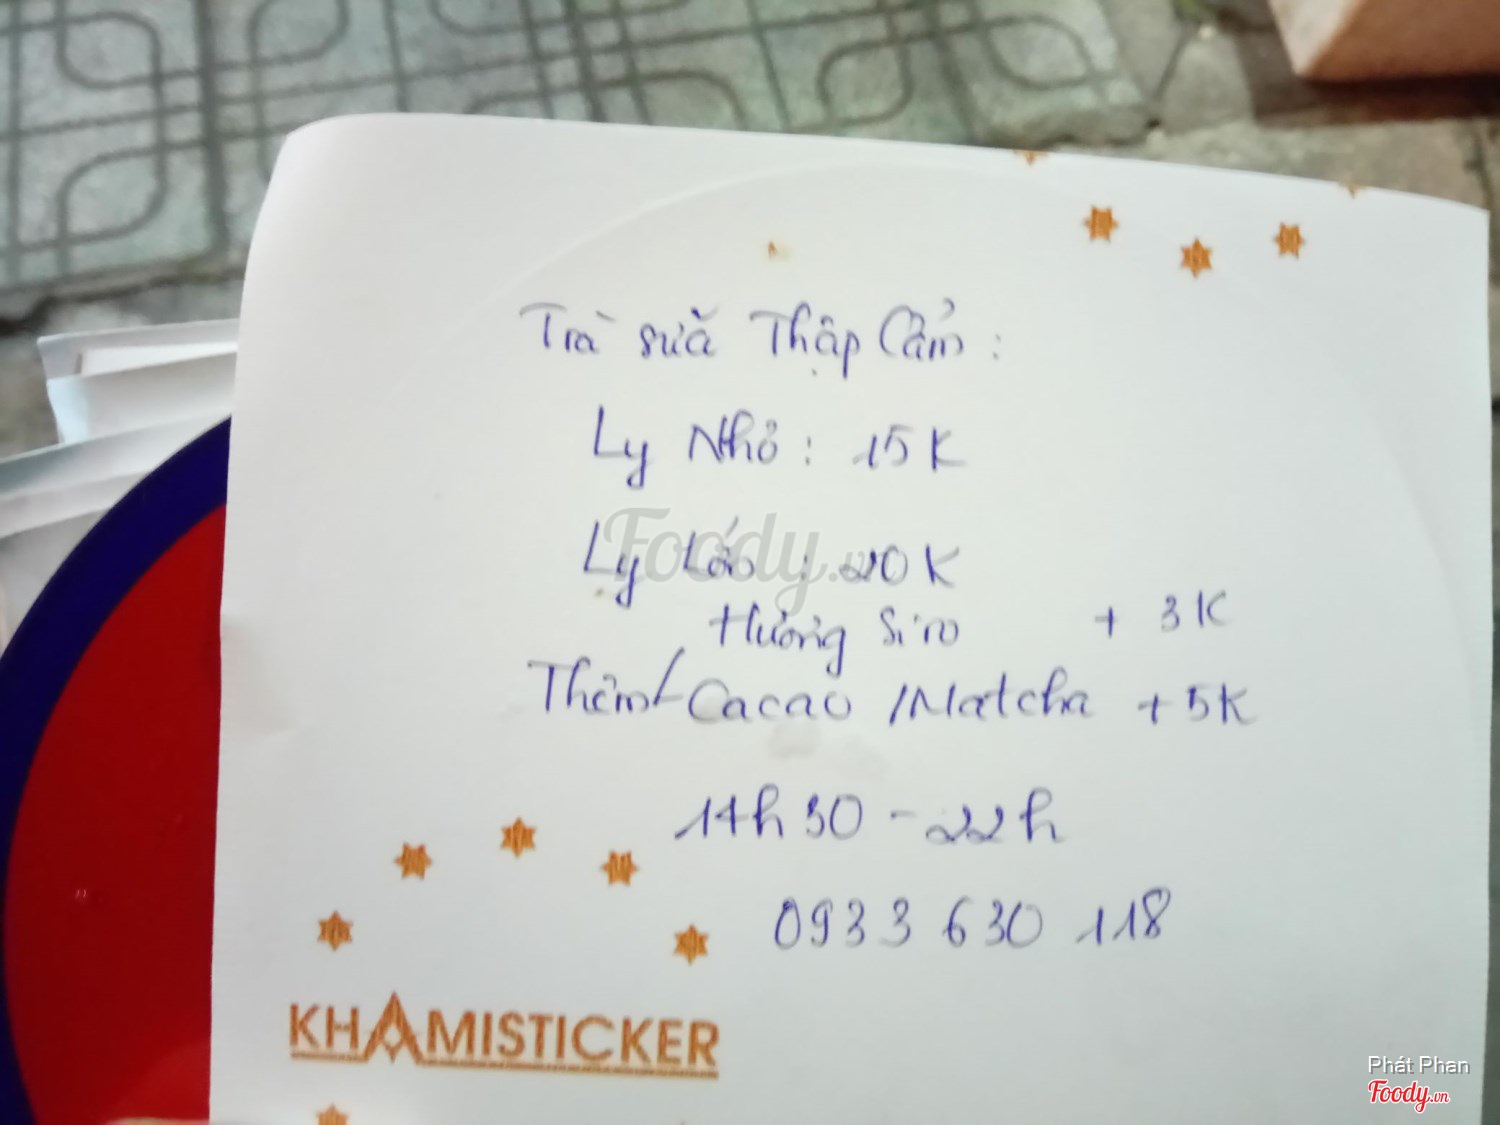 Trà sữa Thập Cẩm :
Ly Nhỏ : 15K
Ly Lớn : 20K
Foody.vn
Hương Siro + 3K
Thêm Cacao /Matcha + 5K
14h30 - 22h
0933 630 118
KHAMISTICKER
Phát Phan
Foody.vn